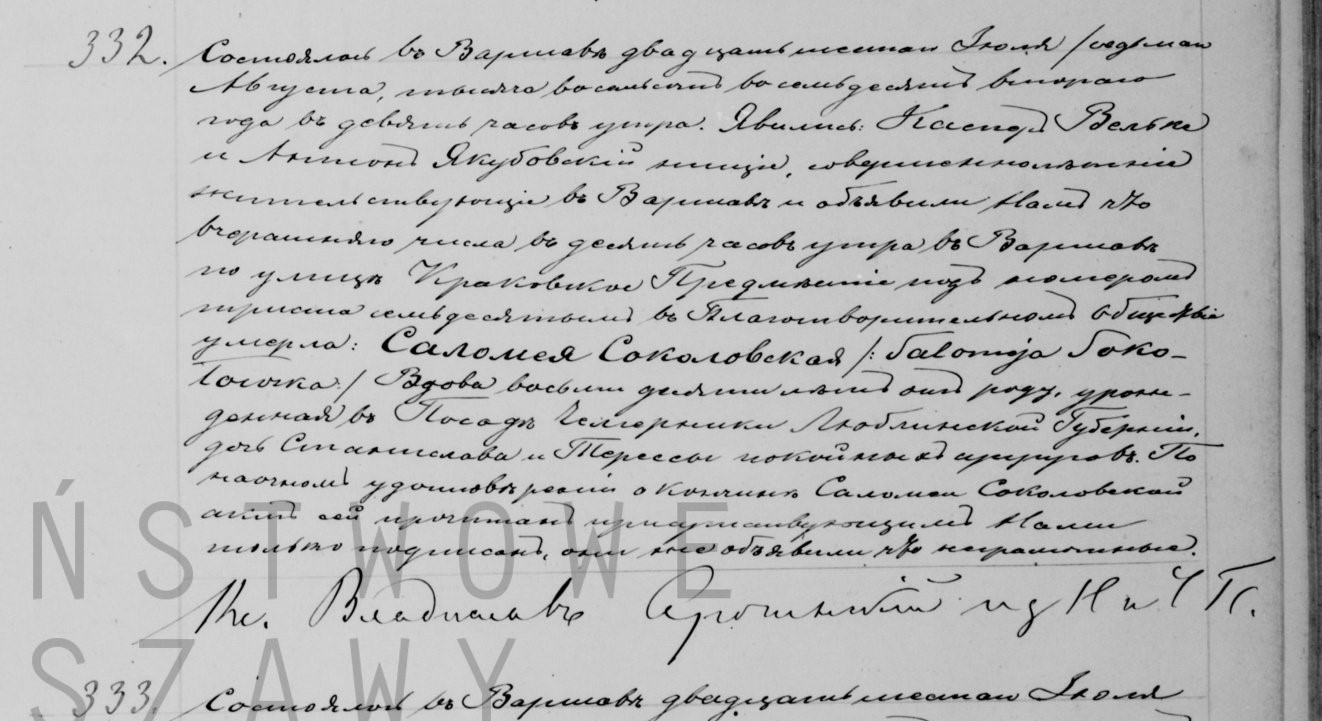 332. Состоялось въ Варшавѣ двадцать шестаго Іюля /седьмаго
Августа, тысяча восемьсотъ восемьдесятъ втораго
года въ девять часовъ утра. Явились:
и Антонъ Якубовскій нищіе, совершеннолѣтніе
жительствующіе въ Варшавѣ и объявили Намъ что
вчерашняго числа въ десять часовъ утра въ Варшавѣ
по улицѣ Краковское Предмѣстіе подъ номеромъ
триста семьдесятымъ въ Благотворительномъ Обществѣ
умерла: Саломея Соколовская /: Salomeja Soko-
łowska :/ Вдова восьмидесяти лѣтъ отъ роду, урож-
денная въ Посадѣ Чемерники Люблинской Губерніи,
дочь Станислава и Терессы покойныхъ супруговъ. По
наочномъ удостовѣреніи о кончинѣ Саломеи Соколовской
актъ сей прочитанъ присутствующимъ Нами
только подписанъ, они же объявили что неграмотные.
Кс. Владиславъ
333. Состоялось въ Варшавѣ двадцать шестаго Іюля
ŃSTWOWE
SZAWY